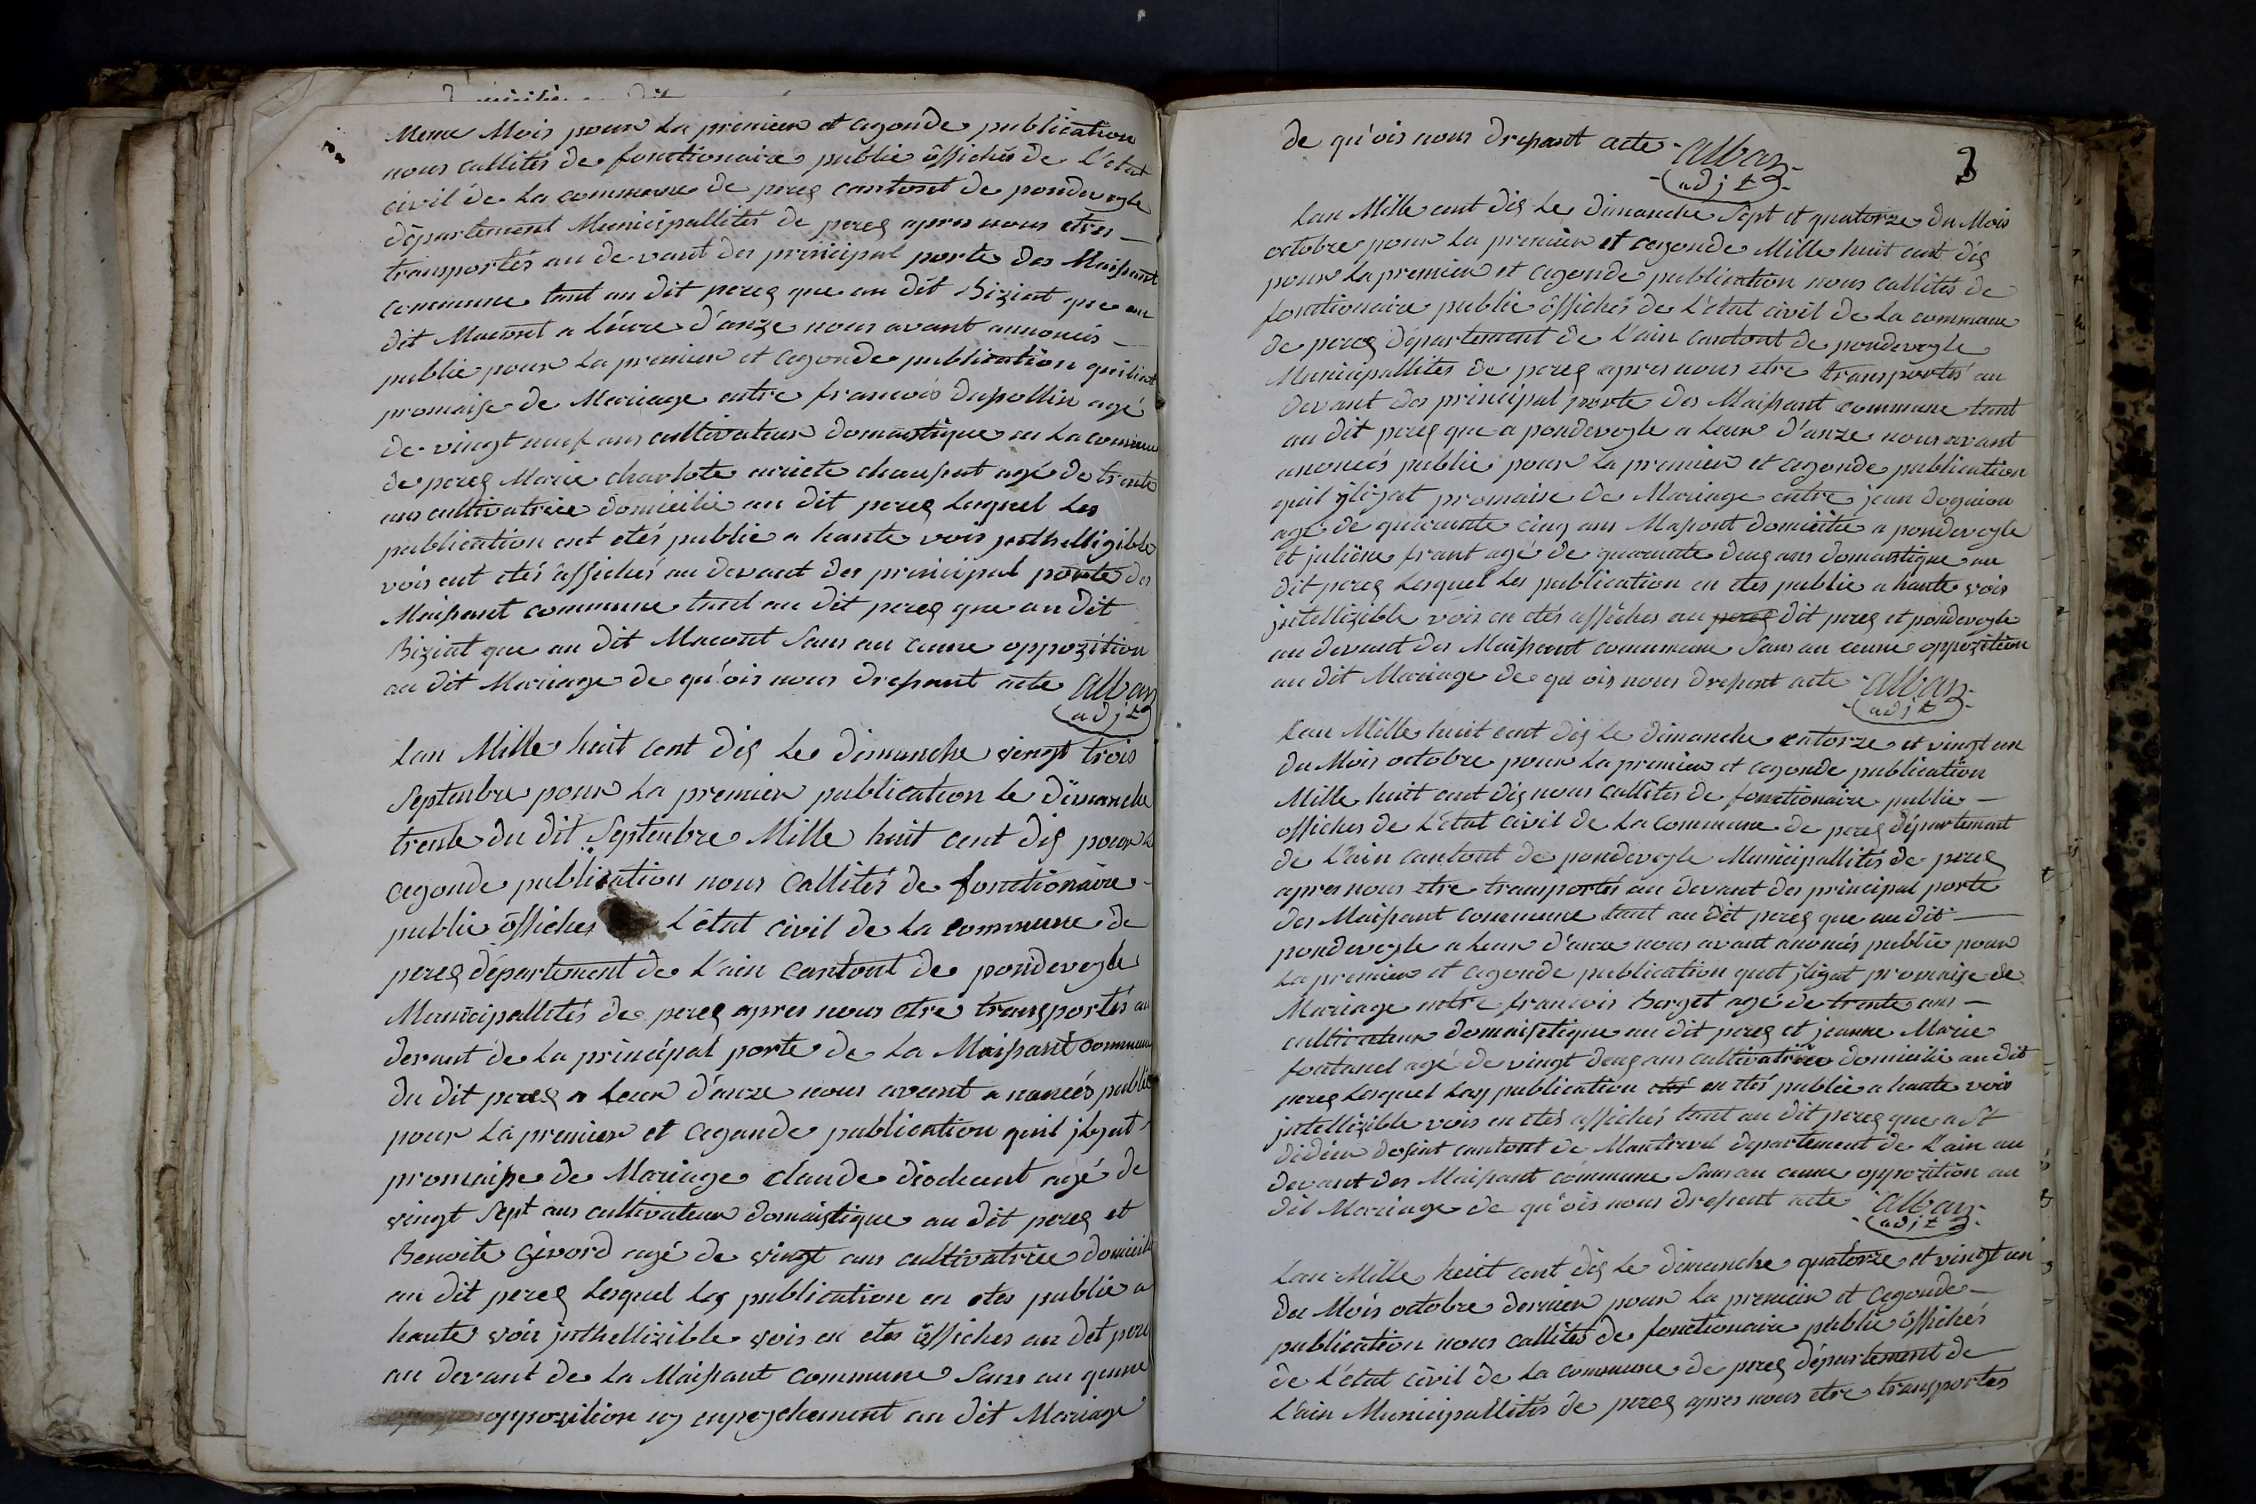 Meme Mois pour La premiere et cegonde publication
nous callités de fonctionaire public óffichés de L'etat
civil de La commune de perez cantont de pondevegle
département Municipallités de perez apres nous etres
transportés au de vant des principal porte des Maisant
commune tant au dit perez que au dit Biziat que au
dit Macont a L'éure d'anze nous avant annoncés
publie pour La premier et cegonde publication quil
promaise de Mariage entre francois Dupollin agé
de vingt neuf ans cultivateur domaistique en La commune
de perez Marie charlote agé de trente
ans cultivatrice domicilie au dit perez Lequel Les
publication ent etés publie a haute vois jnthelligible
vois ent etés affichés au devant des principal porte des
Maisant commune tant au dit perez que au dit
Biziat que au dit Macont Sans au cune oppozition
au dit Mariage de qu'ois nous dresant acte Alban
adjt
Lan Mille huit cent dis Le dimanche vingt trois
Septenbre pour La premier publication Le dimanche
trente du dit Septenbre Mille huit cent dis pour
cegonde publication nous Callités de fonctionaire
public óffiches L'état civil de La commune de
perez département de L'ain cantont de pondevegle
Municipallités de perez apres nous etre transportés au
devant de La principal porte de La Maisant commune
du dit perez a Leur d'anze nous avant a noncés publie
pour La premier et Cegonde publication quil jlyat
promaise de Mariage claude diochant agé de
vingt Sept ans cultivateur domaistique au dit perez et
Benoite Givord agé de vingt ans cultivatrice domicile
au dit perez Lesquel Les publication en etes publie a
haute vois jnthellizible vois en etes áffiches au dit perez
au devant de La Maisant commune Sans au qunne
oppozition enpechement au dit Mariage
de qu'ois nous dresant acte Alban
adjt
3
Lan Mille cent dis Le dimanche Sept et quatorze du Mois
octobre pour La premier et cegonde Mille huit cent dis
pour La premier et cegonde publication nous callités de
fonctionaire public óffichés de L'état civil de La commune
de perez département de L'ain cantont de pondevegle
Municipallités de perez apres nous etre transportés au
devant des principal porte des Maisant commune tant
au dit perez que a pondevegle a Leur d'anze nous avant
anoncés publie pour La premier et cegonde publication
quil jlizat promaise de Mariage entre jean doguion
agé de quarante cinq ans Masont domicilie a pondevegle
et juliene frant agé de quarante deus ans domaistique au
dit perez Lesquel Les publication en etes publie a haute vois
jntellizible vois en etés affiches au perez dit perez et pondevegle
au devant des Maisant commune Sans au cunne oppozition
au dit Mariage de qu'ois nous dresent acte Alban
adjt
Lan Mille huit cent dis Le dimanche catorze et vingt un
du Mois octobre pour La premier et cegonde publication
Mille huit cent dis nous callités de fonctionaire public
offiches de L'état civil de La commune de perez département
de L'ain cantont de pondevegle Municipallités de perez
apres nous etre transportés au devant des principal porte
des Maisant commune tant au dit perez que au dit
pondevegle a Leur d'anze nous avant anoncés publie pour
La premier et cegonde publication quit jlizat promaise de
Mariage entre francois Berget agé de trente ans
cultivateur domaistique au dit perez et jeanne Marie
fontanel agé de vingt deus ans cultivatrice domicilié au dit
perez Lesquel Las publication etes en etés publie a haute vois
jntellizible vois en etés affichés tant au dit perez que a St
didier cantont de Montrevel departement de L'ain au
devant des Maisant commune Sans au cunne oppozition au
dit Mariage de qu'ois nous dresent acte Alban
adjt
Lan Mille huit cent dis Le dimanche quatorze et vingt un
du Mois octobre dernier pour La premier et Cegonde
publication nous callités de fonctionaire public óffichés
de L'état civil de La commune de perez département de
L'ain Municipallités de perez apres nous etre transportes